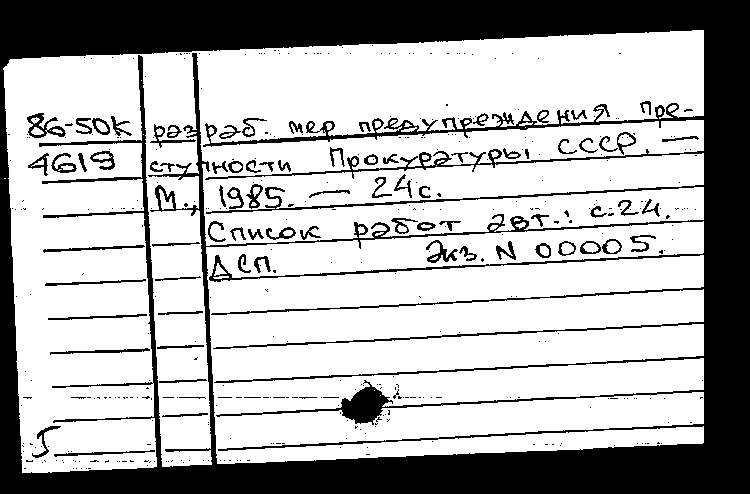 86-50к разраб. мер предупреждения пре-
4619 ступности Прокуратуры СССР. —
М., 1985. — 24 с.
Список работ авт.: с. 24.
ДСП. Экз. N 00005.